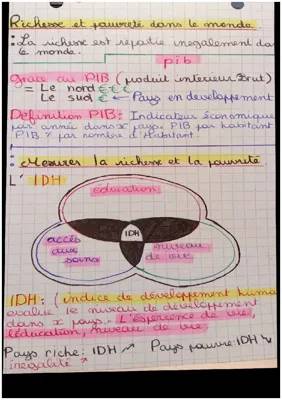 Richesse et pauvreté dans le monde
: La richesse est répartie inegalement dans
le monde.
pib
grâce au PIB (produit intérieur brut)
= Le nord €€€
Le sud € ← Pays en développement
Définition PIB: Indicateur économique
par année dans x pays. PIB par habitant
PIB ÷ par nombre d'habitant.
: Mesurer la richesse et la pauvreté
L' IDH
éducation
IDH
accès
aux
soins
niveau
de vie
IDH: (indice de développement humain
évalue le niveau de développement
dans x pays. L'espérence de vie,
l'éducation, niveau de vie.
Pays riche: IDH ↗ Pays pauvre: IDH ↘
inégalité